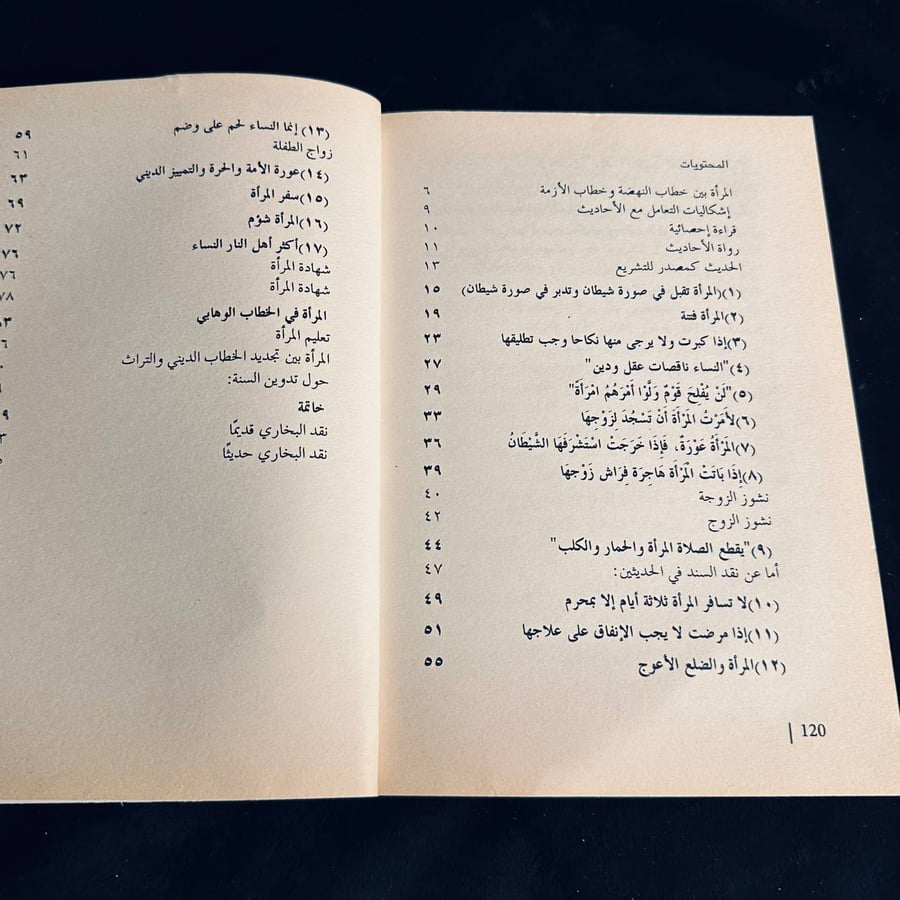 المحتويات
المرأة بين خطاب النهضة وخطاب الأزمة ٦
إشكاليات التعامل مع الأحاديث ٩
قراءة إحصائية ١٠
رواة الأحاديث ١١
الحديث كمصدر للتشريع ١٣
(١)(المرأة تقبل في صورة شيطان وتدبر في صورة شيطان) ١٥
(٢)المرأة فتنة ١٩
(٣)إذا كبرت ولا يرجى منها نكاحا وجب تطليقها ٢٣
(٤)"النساء ناقصات عقل ودين" ٢٧
(٥)"لَنْ يُفْلِحَ قَوْمٌ وَلَّوْا أَمْرَهُمُ امْرَأَةً" ٢٩
(٦)لأَمَرْتُ المَرْأَةَ أَنْ تَسْجُدَ لِزَوْجِهَا ٣٣
(٧)المَرْأَةُ عَوْرَةٌ، فَإِذَا خَرَجَتْ اسْتَشْرَفَهَا الشَّيْطَانُ ٣٦
(٨)إِذَا بَاتَتْ الْمَرْأَة هَاجِرَة فِرَاش زَوْجهَا ٣٩
نشوز الزوجة ٤٠
نشوز الزوج ٤٢
(٩)"يقطع الصلاة المرأة والحمار والكلب" ٤٤
أما عن نقد السند في الحديثين: ٤٧
(١٠)لا تسافر المرأة ثلاثة أيام إلا بمحرم ٤٩
(١١)إذا مرضت لا يجب الإنفاق على علاجها ٥١
(١٢)المرأة والضلع الأعوج ٥٥
120 |
(١٣)إنما النساء لحم على وضم ٥٩
زواج الطفلة ٦١
(١٤)عورة الأمة والحرة والتمييز الديني ٦٣
(١٥)سفر المرأة ٦٩
(١٦)المرأة شؤم ٧٢
(١٧)أكثر أهل النار النساء ٧٦
شهادة المرأة
شهادة المرأة
المرأة في الخطاب الوهابي
تعليم المرأة
المرأة بين تجديد الخطاب الديني والتراث
حول تدوين السنة:
خاتمة
نقد البخاري قديمًا
نقد البخاري حديثًا